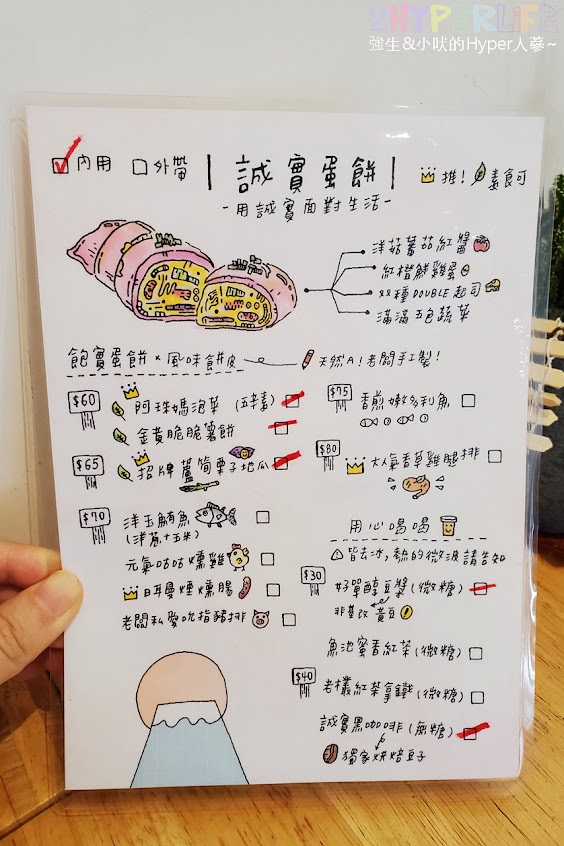 2HYPERLiFE
強生&小吠的Hyper人蔘~
內用 外帶 誠實蛋餅 推! 素食可
-用誠實面對生活-
洋菇蕃茄紅醬
紅橙鮮雞蛋
双種DOUBLE起司
滿滿五色蔬菜
飽實蛋餅×風味餅皮 天然A!老闆手工製!
$60 阿珠媽泡菜 (五辛素)
金黃脆脆薯餅
$65 招牌蘆筍栗子地瓜
$70 洋玉鮪魚
(洋蔥+玉米)
元氣咕咕燻雞
日耳曼煙燻腸
老闆私愛吮指豬排
$75 香煎嫩多利魚
$80 大人氣香草雞腿排
用心喝喝
皆去冰,熱的微波請告知
$30 好單醇豆漿(微糖)
非基改黃豆
魚池蜜香紅茶(微糖)
$40 老欉紅茶拿鐵(微糖)
誠實黑咖啡(無糖)
獨家烘焙豆子